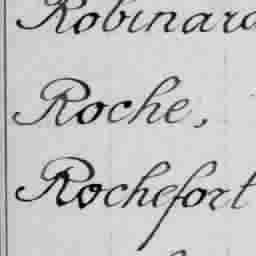 Robinard
Roche,
Rochefort